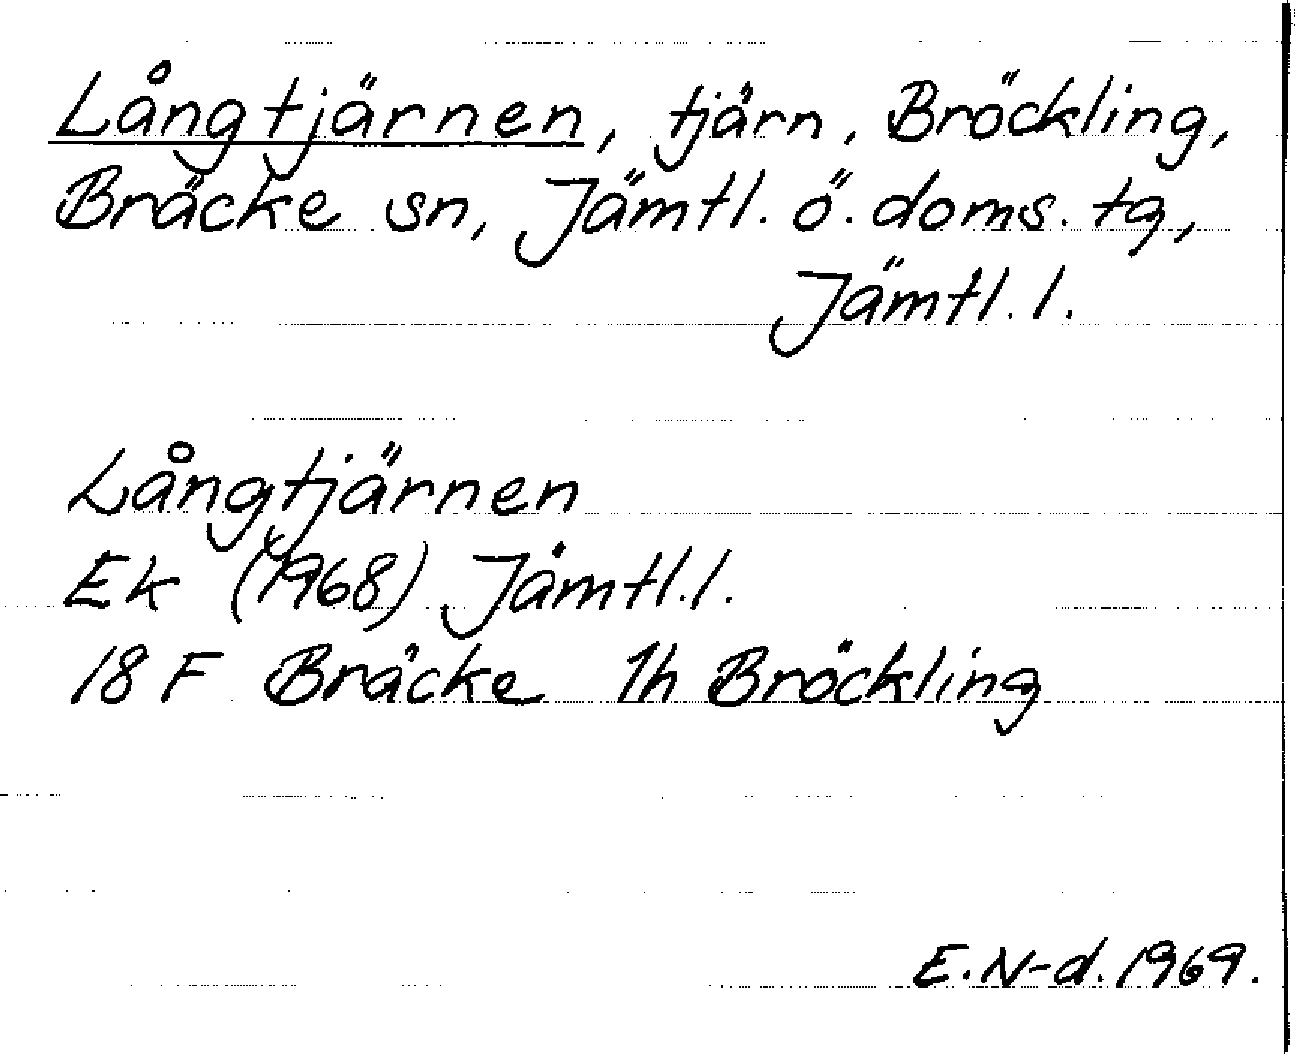 Långtjärnen, tjärn, Bröckling,
Bräcke sn, Jämtl. ö. doms. tg,
Jämtl. l.
Långtjärnen
Ek (1968) Jämtl. l.
18 F Bräcke 1h Bröckling
E. N-d. 1969.